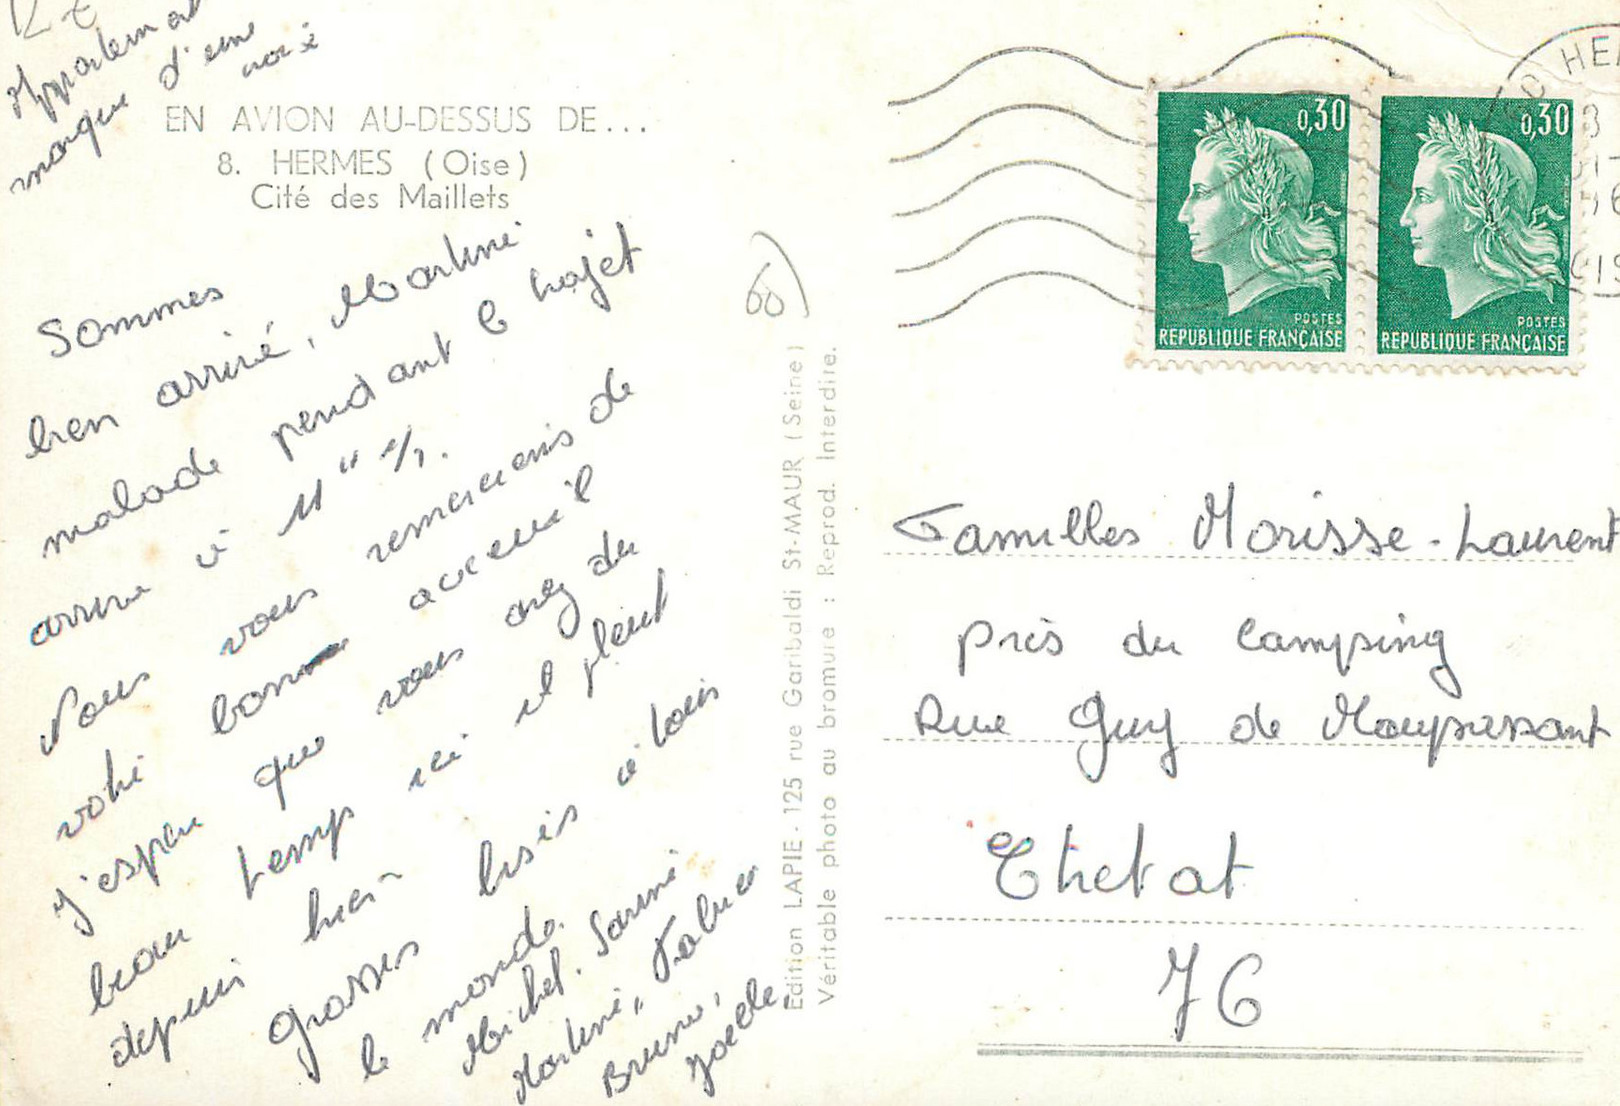 Appartement
marqué d'une
croix
EN AVION AU-DESSUS DE...
8. HERMES (Oise)
Cité des Maillets
Sommes
bien arrivé, Martine
malade pendant le trajet
arrivé à 11H 1/2.
Nous vous remercions de
votre bonne acceuil
j'espère que vous avez du
beau temps ici il pleut
depuis hier
grosses bises à tous
le monde.
Michel. 
Martine, Fabrice
Bruno,
Joelle.
Edition LAPIE - 125 rue Garibaldi St-MAUR (Seine)
Véritable photo au bromure : Reprod. Interdite.
0,30
POSTES
REPUBLIQUE FRANÇAISE
0,30
POSTES
REPUBLIQUE FRANÇAISE
60 HE
Familles Morisse-Laurent
près du Camping
Rue Guy de Maupassant
Etretat
76